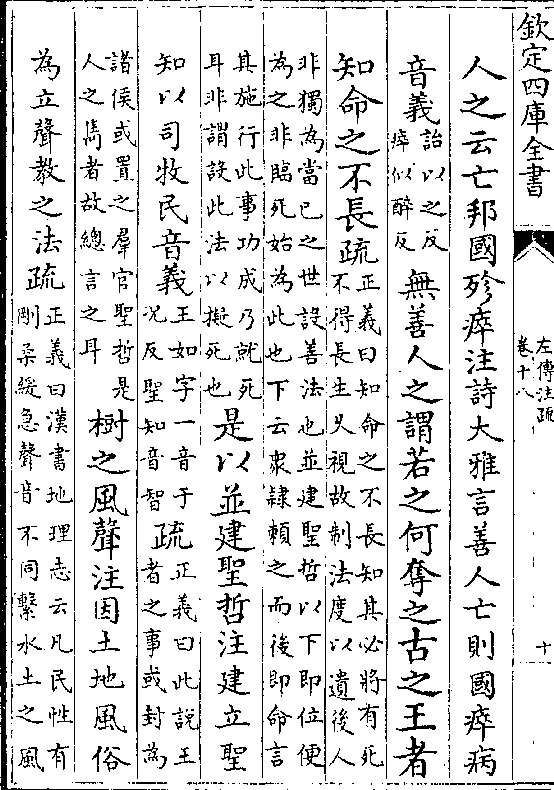 欽定四庫全書
左傳注疏
卷十八
十
人之云亡邦國殄瘁注詩大雅言善人亡則國瘁病
音義詒以之反
瘁似醉反
無善人之謂若之何奪之古之王者
知命之不長疏正義曰知命之不長知其必將有死
不得長生久視故制法度以遺後人
非獨為當已之世設善法也並建聖哲以下即位便
為之非臨死始為此也下云衆隷賴之而後即命言
其施行此事功成乃就死
耳非謂設此法以擬死也
是以並建聖哲注建立聖
知以司牧民音義王如字一音于
况反聖知音智
疏正義曰此說王
者之事或封為
諸侯或置之羣官聖哲是
人之雋者故總言之耳
樹之風聲注因土地風俗
為立聲教之法疏正義曰漢書地理志云凡民性有
剛柔緩急聲音不同繫水土之風